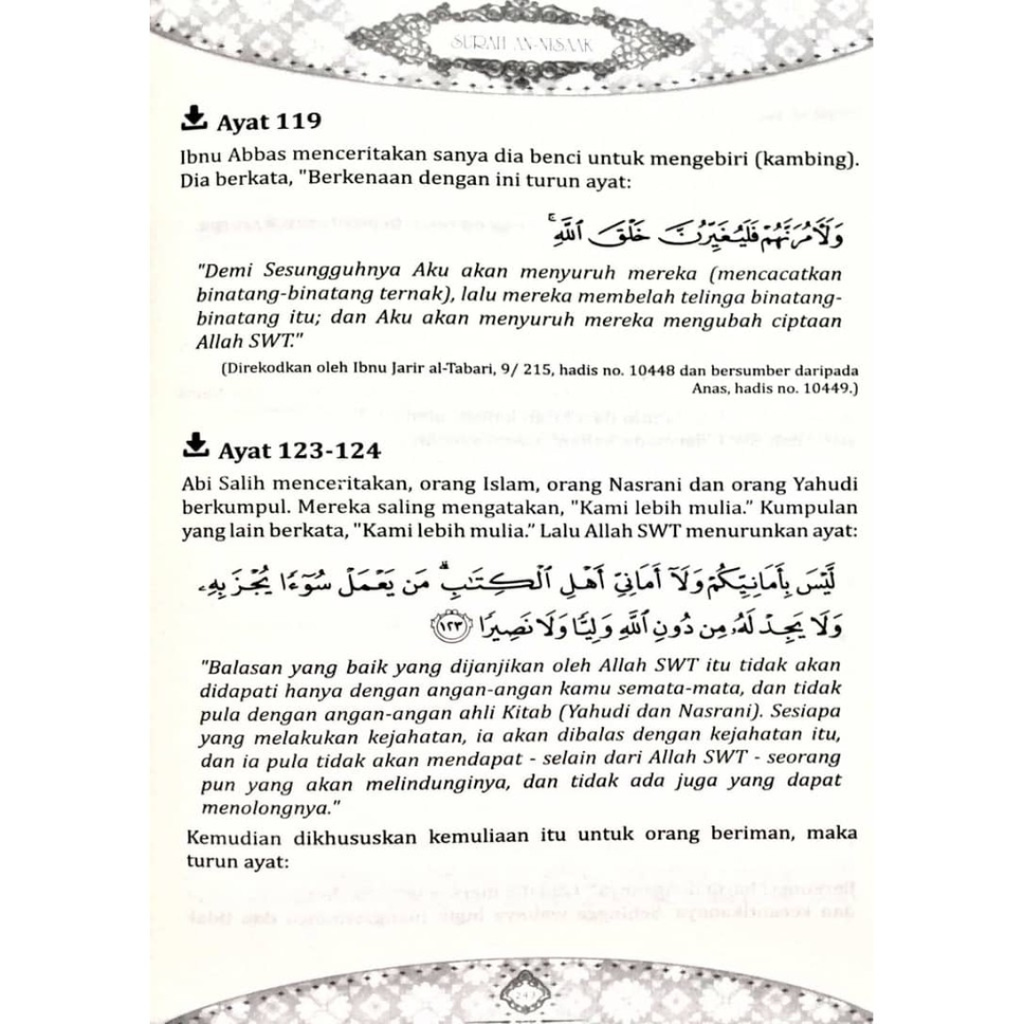 SURAH AN-NISAAK
Ayat 119
Ibnu Abbas menceritakan sanya dia benci untuk mengebiri (kambing).
Dia berkata, "Berkenaan dengan ini turun ayat:
وَلَأٓمُرَنَّهُمْ فَلَيُغَيِّرُنَّ خَلْقَ ٱللَّهِ ۚ
"Demi Sesungguhnya Aku akan menyuruh mereka (mencacatkan
binatang-binatang ternak), lalu mereka membelah telinga binatang-
binatang itu; dan Aku akan menyuruh mereka mengubah ciptaan
Allah SWT."
(Direkodkan oleh Ibnu Jarir al-Tabari, 9/ 215, hadis no. 10448 dan bersumber daripada
Anas, hadis no. 10449.)
Ayat 123-124
Abi Salih menceritakan, orang Islam, orang Nasrani dan orang Yahudi
berkumpul. Mereka saling mengatakan, "Kami lebih mulia." Kumpulan
yang lain berkata, "Kami lebih mulia." Lalu Allah SWT menurunkan ayat:
لَّيْسَ بِأَمَانِيِّكُمْ وَلَآ أَمَانِىِّ أَهْلِ ٱلْكِتَـٰبِ ۗ مَن يَعْمَلْ سُوٓءًا يُجْزَ بِهِۦ
وَلَا يَجِدْ لَهُۥ مِن دُونِ ٱللَّهِ وَلِيًّا وَلَا نَصِيرًا ١٢٣
"Balasan yang baik yang dijanjikan oleh Allah SWT itu tidak akan
didapati hanya dengan angan-angan kamu semata-mata, dan tidak
pula dengan angan-angan ahli Kitab (Yahudi dan Nasrani). Sesiapa
yang melakukan kejahatan, ia akan dibalas dengan kejahatan itu,
dan ia pula tidak akan mendapat - selain dari Allah SWT - seorang
pun yang akan melindunginya, dan tidak ada juga yang dapat
menolongnya."
Kemudian dikhususkan kemuliaan itu untuk orang beriman, maka
turun ayat: